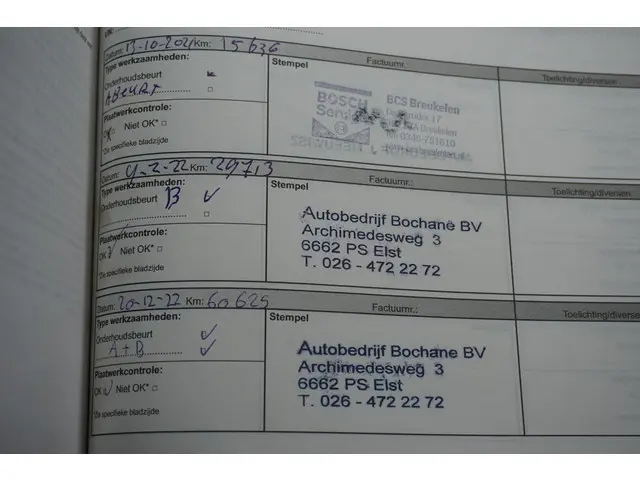 Datum: 13-10-2021 Km: 15636
Type werkzaamheden:
Onderhoudsbeurt
ABeurt
Plaatwerkcontrole:
OK Niet OK*
*Zie specifieke bladzijde
Stempel
Factuurnr.:
Toelichting/diversen
BOSCH
BCS Breukelen
17
Breukelen
0346-
Datum: 9-2-22 Km:
Type werkzaamheden:
Onderhoudsbeurt B
Plaatwerkcontrole:
OK Niet OK*
*Zie specifieke bladzijde
Stempel
Factuurnr.:
Toelichting/diversen
Autobedrijf Bochane BV
Archimedesweg 3
6662 PS Elst
T. 026 - 472 22 72
Datum: 20-12-22 Km: 60625
Type werkzaamheden:
Onderhoudsbeurt
A+B
Plaatwerkcontrole:
OK Niet OK*
*Zie specifieke bladzijde
Stempel
Factuurnr.:
Toelichting/diversen
Autobedrijf Bochane BV
Archimedesweg 3
6662 PS Elst
T. 026 - 472 22 72